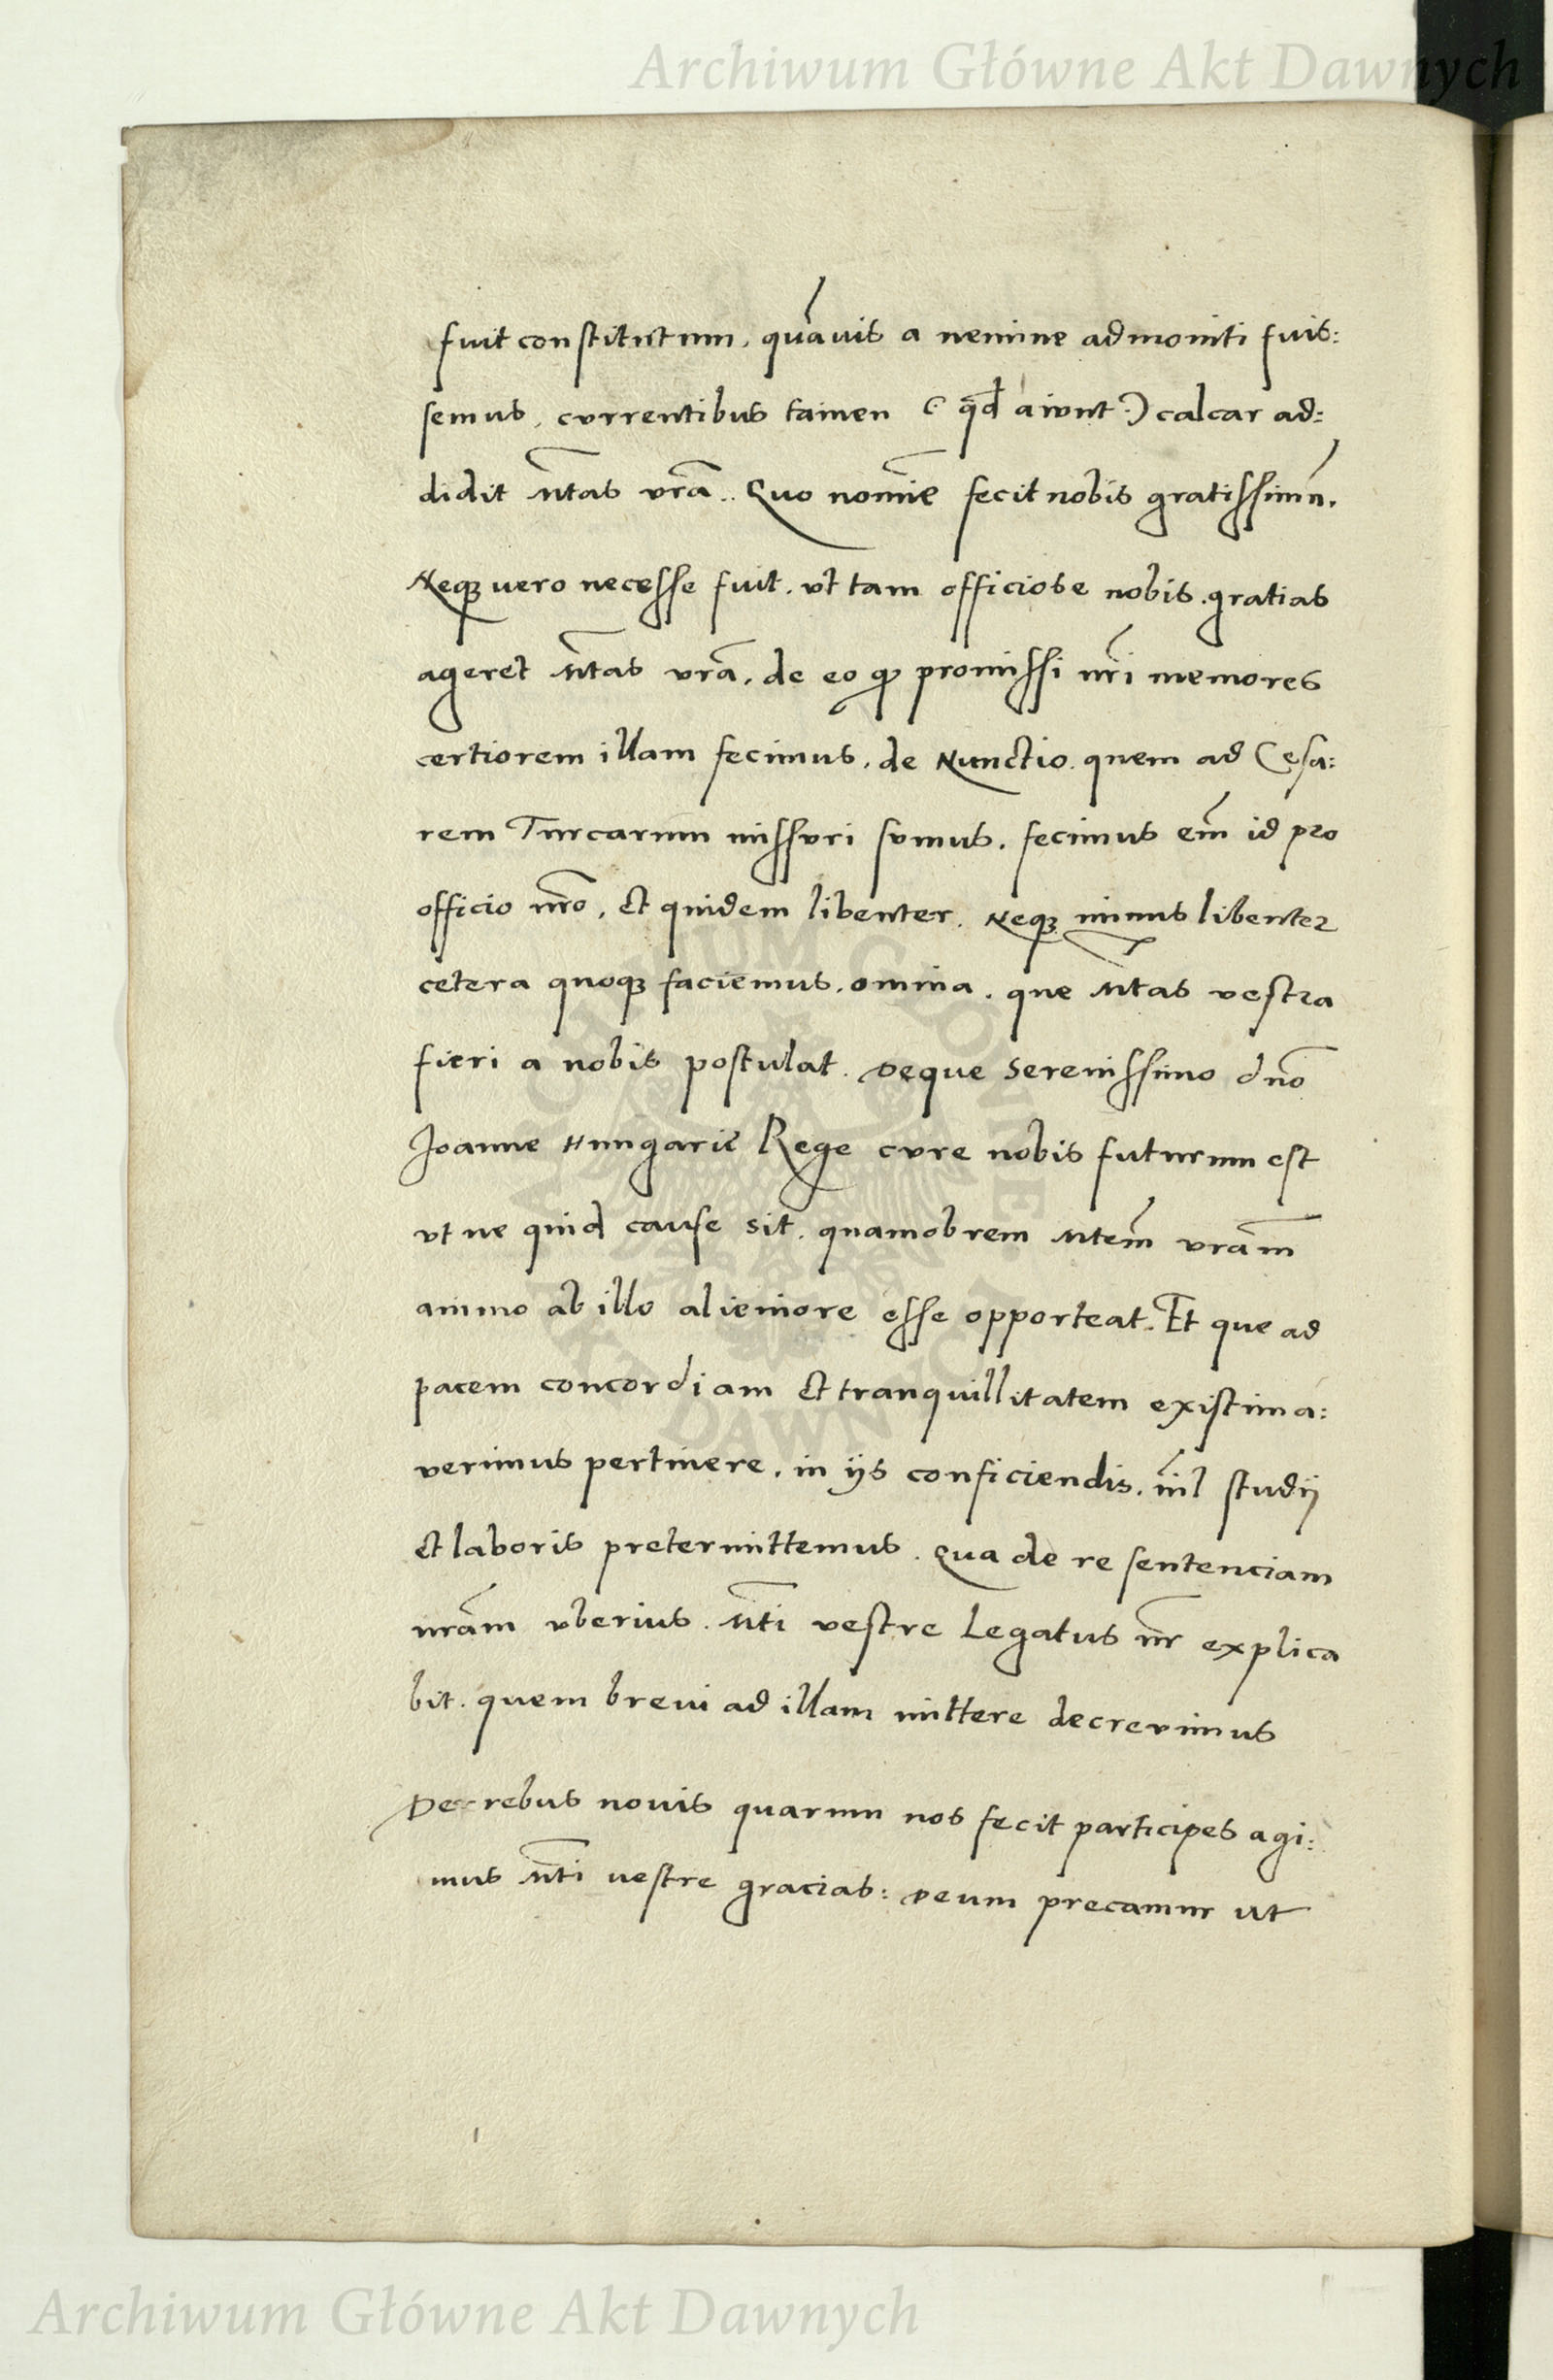 Archiwum Główne Akt Dawnych
fuit constitutum, quãuis a nemine admoniti fuis:
semus, currentibus tamen (: qd̃ aiunt :) calcar ad:
didit Mtãs vrã. Quo nomĩe fecit nobis gratissimũ.
Neqꝫ uero necesse fuit, vt tam officiose nobis gratias
ageret Mtãs vrã, de eo ꝙ promissi nrĩ memores
certiorem illam fecimus, de Nunctio quem ad Cesa:
rem Turcarum missuri sumus. fecimus em̃ id pro
officio nrõ, et quidem libenter. Neqꝫ minus libenter
cetera quoqꝫ faciemus omnia, que Mtãs vestra
fieri a nobis postulat. Deque Serenissimo dnõ
Joanne Hungarie Rege cure nobis futurum est
vt ne quid cause sit, quamobrem Mtem̃ vrãm
animo ab illo alieniore esse opporteat. Et que ad
pacem concordiam et tranquillitatem existima:
verimus pertinere, in ijs conficiendis, nil̃ studij
et laboris pretermittemus. Qua de re sentenciam
nrãm vberius Mtĩ vestre Legatus nr̃ explica
bit, quem breui ad illam mittere decrevimus
De rebus nouis quarum nos fecit participes agi:
mus Mtĩ vestre gracias: Deum precamur ut
ARCHIWUM GŁÓWNE AKT DAWNYCH
Archiwum Główne Akt Dawnych